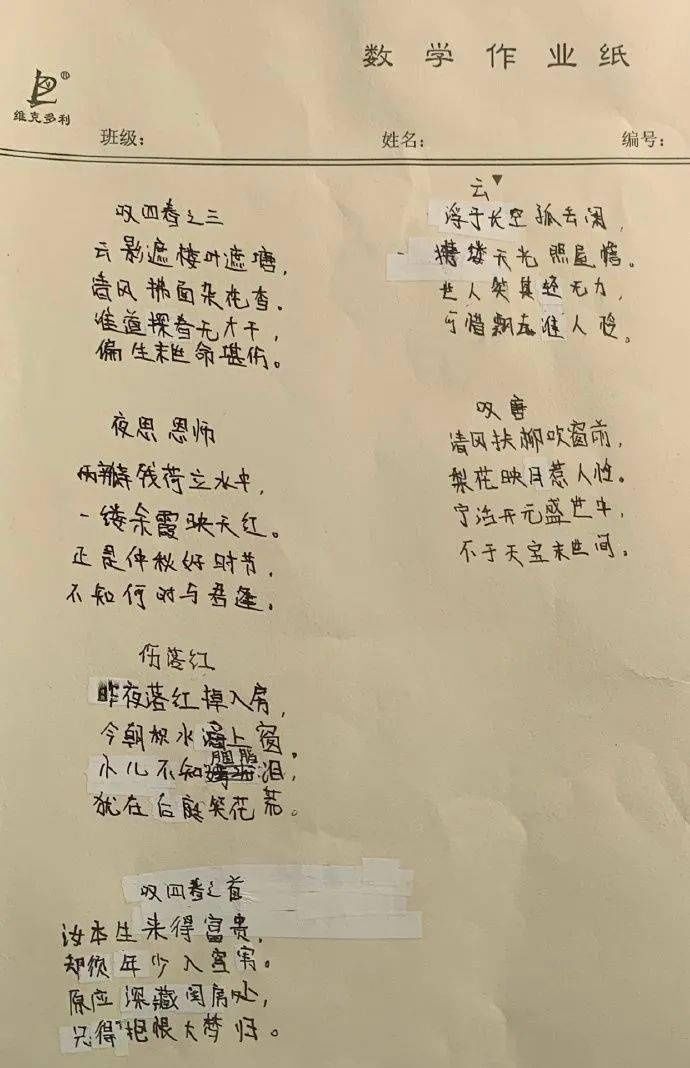 数学作业纸
维克多利
班级：
姓名：
编号：
叹四春之三
云影遮楼叶遮塘，
清风拂面杂花香。
谁道探春无才干，
偏生末世命堪伤。
夜思恩师
两瓣残荷立水中，
一缕余霞映天红。
正是仲秋好时节，
不知何时与君逢。
伤落红
昨夜落红掉入房，
今朝积水漫上窗。
小儿不知胭脂泪，
犹在后庭笑花荒。
叹四春之首
汝本生来得富贵，
却须年少入宫帘。
原应深藏闺房处，
只得抱恨大梦归。
云
浮于长空孤云闲，
一缕天光照屋檐。
世人笑其轻无力，
可惜飘去谁人怜。
叹唐
清风扶柳吹窗前，
梨花映月惹人怜。
宁活开元盛世中，
不于天宝末世间。